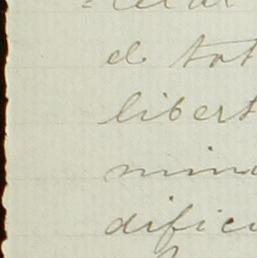 el tot
libert
mino
dificu